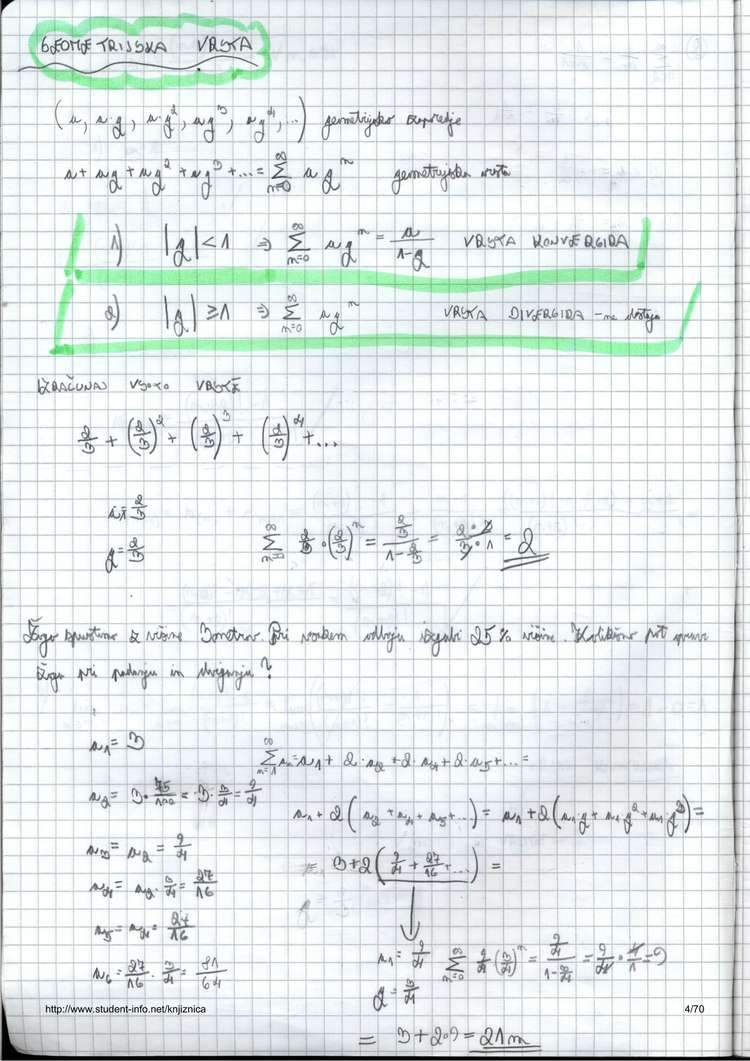 GEOMETRIJSKA VRSTA
(a, a·q, a·q², aq³, aq⁴, ...) geometrijsko zaporedje
a + aq + aq² + aq³ + ... = ∑_{n=0}^{∞} a q^n geometrijska vrsta
1) |q| < 1 ⇒ ∑_{n=0}^{∞} a q^n = a/(1-q) VRSTA KONVERGIRA
2) |q| ≥ 1 ⇒ ∑_{n=0}^{∞} a q^n VRSTA DIVERGIRA - ne obstaja
IZRAČUNAJ VSOTO VRSTE
2/3 + (2/3)² + (2/3)³ + (2/3)⁴ + ...
a = 2/3
q = 2/3
∑_{n=0}^{∞} 2/3 · (2/3)^n = (2/3)/(1 - 2/3) = (2·3)/(3·1) = 2
Žogo spustimo iz višine 3 metrov. Pri vsakem odboju izgubi 25% višine. Kolikšno pot opravi
žoga pri padanju in dviganju?
a₁ = 3
∑_{n=1}^{∞} aₙ = a₁ + 2·a₂ + 2·a₄ + 2·a₅ + ... =
a₂ = 3 · 75/100 = 3 · 3/4 = 9/4
a₁ + 2(a₂ + a₄ + a₅ + ...) = a₁ + 2(a₁·q + a₁·q² + a₁·q³) =
a₃ = a₂ = 9/4
= 3 + 2(9/4 + 27/16 + ...) =
a₄ = a₂ · 3/4 = 27/16
a₅ = a₄ = 27/16
a₁ = 9/4 ∑_{n=0}^{∞} 9/4 · (3/4)^n = (9/4)/(1 - 3/4) = 9/4 · 4/1 = 9
a₆ = 27/16 · 3/4 = 81/64
q = 3/4
http://www.student-info.net/knjiznica 4/70
= 3 + 2·9 = 21m